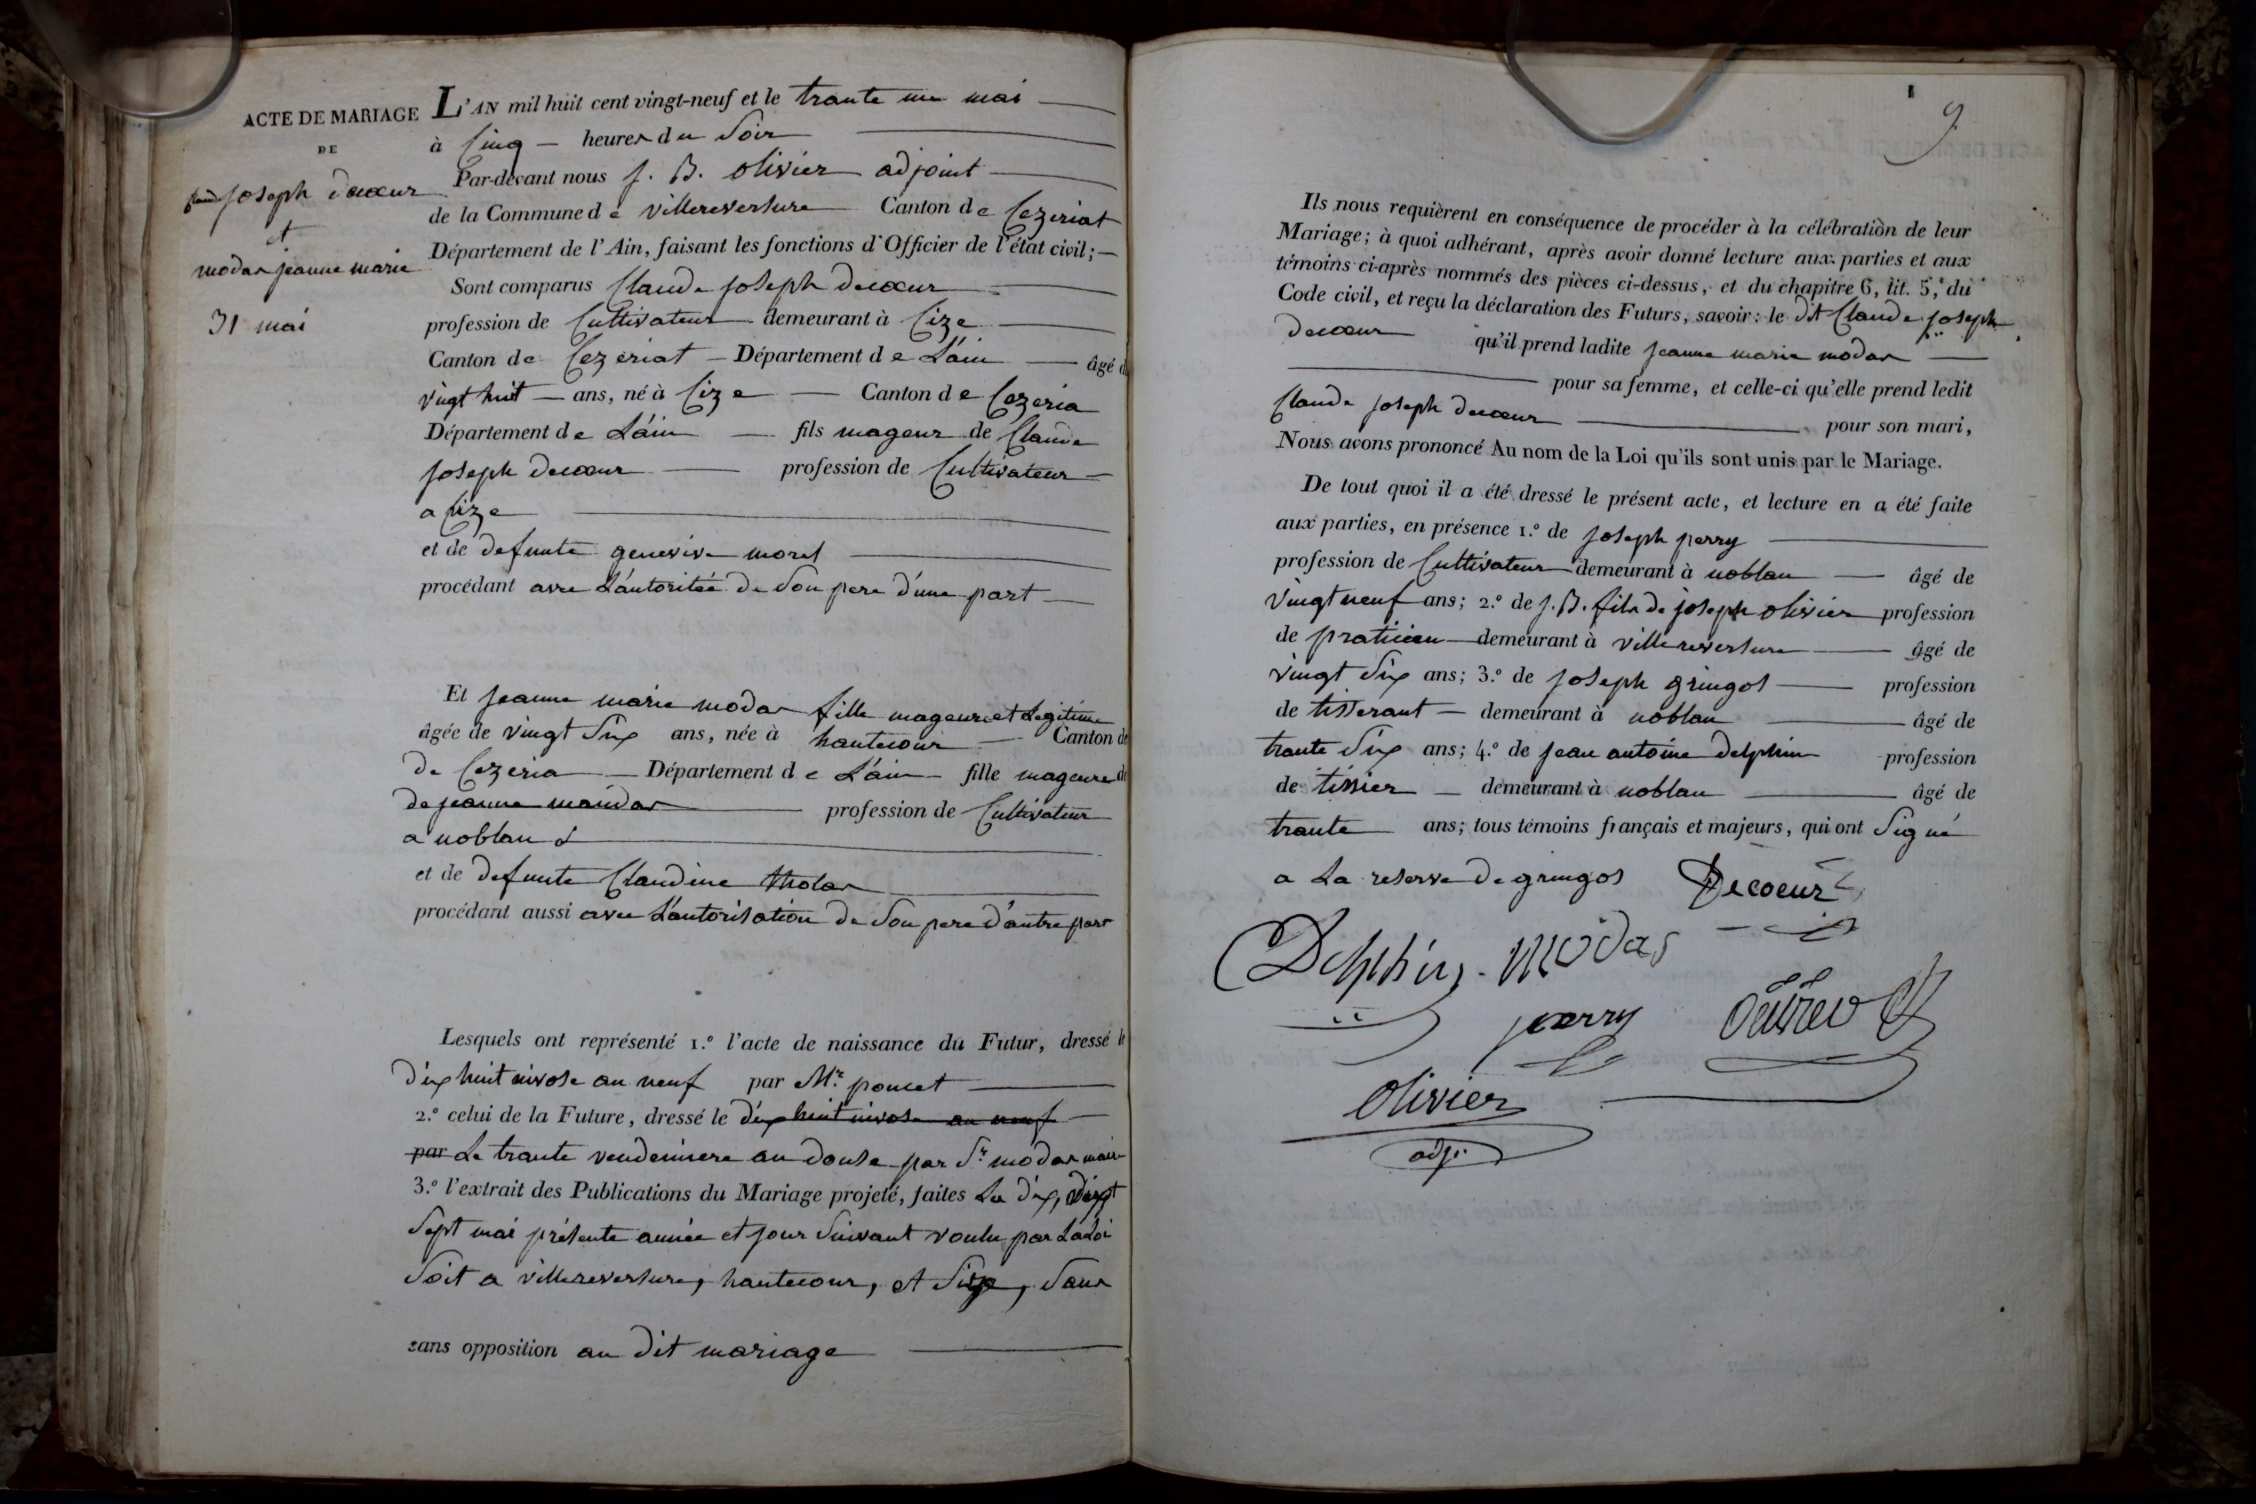 ACTE DE MARIAGE
DE
Claude joseph decœur
et
modas jeanne marie
31 mai
L'AN mil huit cent vingt-neuf et le trante un mai
à Cinq heures du Soir
Par-devant nous J. B. olivier adjoint
de la Commune de villereversure Canton de Cezeriat
Département de l'Ain, faisant les fonctions d'Officier de l'état civil;
Sont comparus Claude joseph decœur
profession de Cultivateur demeurant à Cize
Canton de Cezeriat Département de L'ain âgé d
vingt huit ans, né à Cize Canton de Cezeria
Département de L'ain fils mageur de Claude
joseph decœur profession de Cultivateur
a Cize
et de defunte genevive morel
procédant avec L'autoritée de Son pere d'une part
Et jeanne marie modas fille mageure et Legitime
âgée de vingt Six ans, née à hautecour Canton de
de Cezeria Département de L'ain fille mageure de
de jeanne modas profession de Cultivateur
a noblan
et de defunte Claudine tholas
procédant aussi avec L'autorisation de Son pere d'autre part
Lesquels ont représenté 1.º l'acte de naissance du Futur, dressé le
dix huit nivose an neuf par Mr. poncet
2.º celui de la Future, dressé le dix huit nivose an neuf
par Le trante vendemiere an douse par Sr. modas maire
3.º l'extrait des Publications du Mariage projeté, faites Le dix, dix
Sept mai présente année et jour Suivant voulu par La Loi
Soit a villereversure, hautecour, et Size, Sans
sans opposition au dit mariage
9
Ils nous requièrent en conséquence de procéder à la célébration de leur
Mariage; à quoi adhérant, après avoir donné lecture aux parties et aux
témoins ci-après nommés des pièces ci-dessus, et du chapitre 6, tit. 5, du
Code civil, et reçu la déclaration des Futurs, savoir: le dit Claude joseph
decœur qu'il prend ladite jeanne marie modas
pour sa femme, et celle-ci qu'elle prend ledit
Claude joseph decœur pour son mari,
Nous avons prononcé Au nom de la Loi qu'ils sont unis par le Mariage.
De tout quoi il a été dressé le présent acte, et lecture en a été faite
aux parties, en présence 1.º de joseph perry
profession de Cultivateur demeurant à noblan âgé de
vingt neuf ans; 2.º de J. B. fils de joseph olivier profession
de praticien demeurant à villereversure âgé de
vingt Six ans; 3.º de joseph gringos profession
de tisserant demeurant à noblan âgé de
trante Six ans; 4.º de jean antoine delphin profession
de tissier demeurant à noblan âgé de
trante ans; tous témoins français et majeurs, qui ont Signé
a La reserve de gringos Decoeur
Delphin modas
perry
olivier
adj.